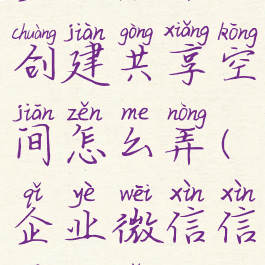 chuàng jiàn gòng xiǎng kōng
创建共享空
jiān zěn me nòng
间怎么弄(
qǐ yè wēi xìn xìn
企业微信信